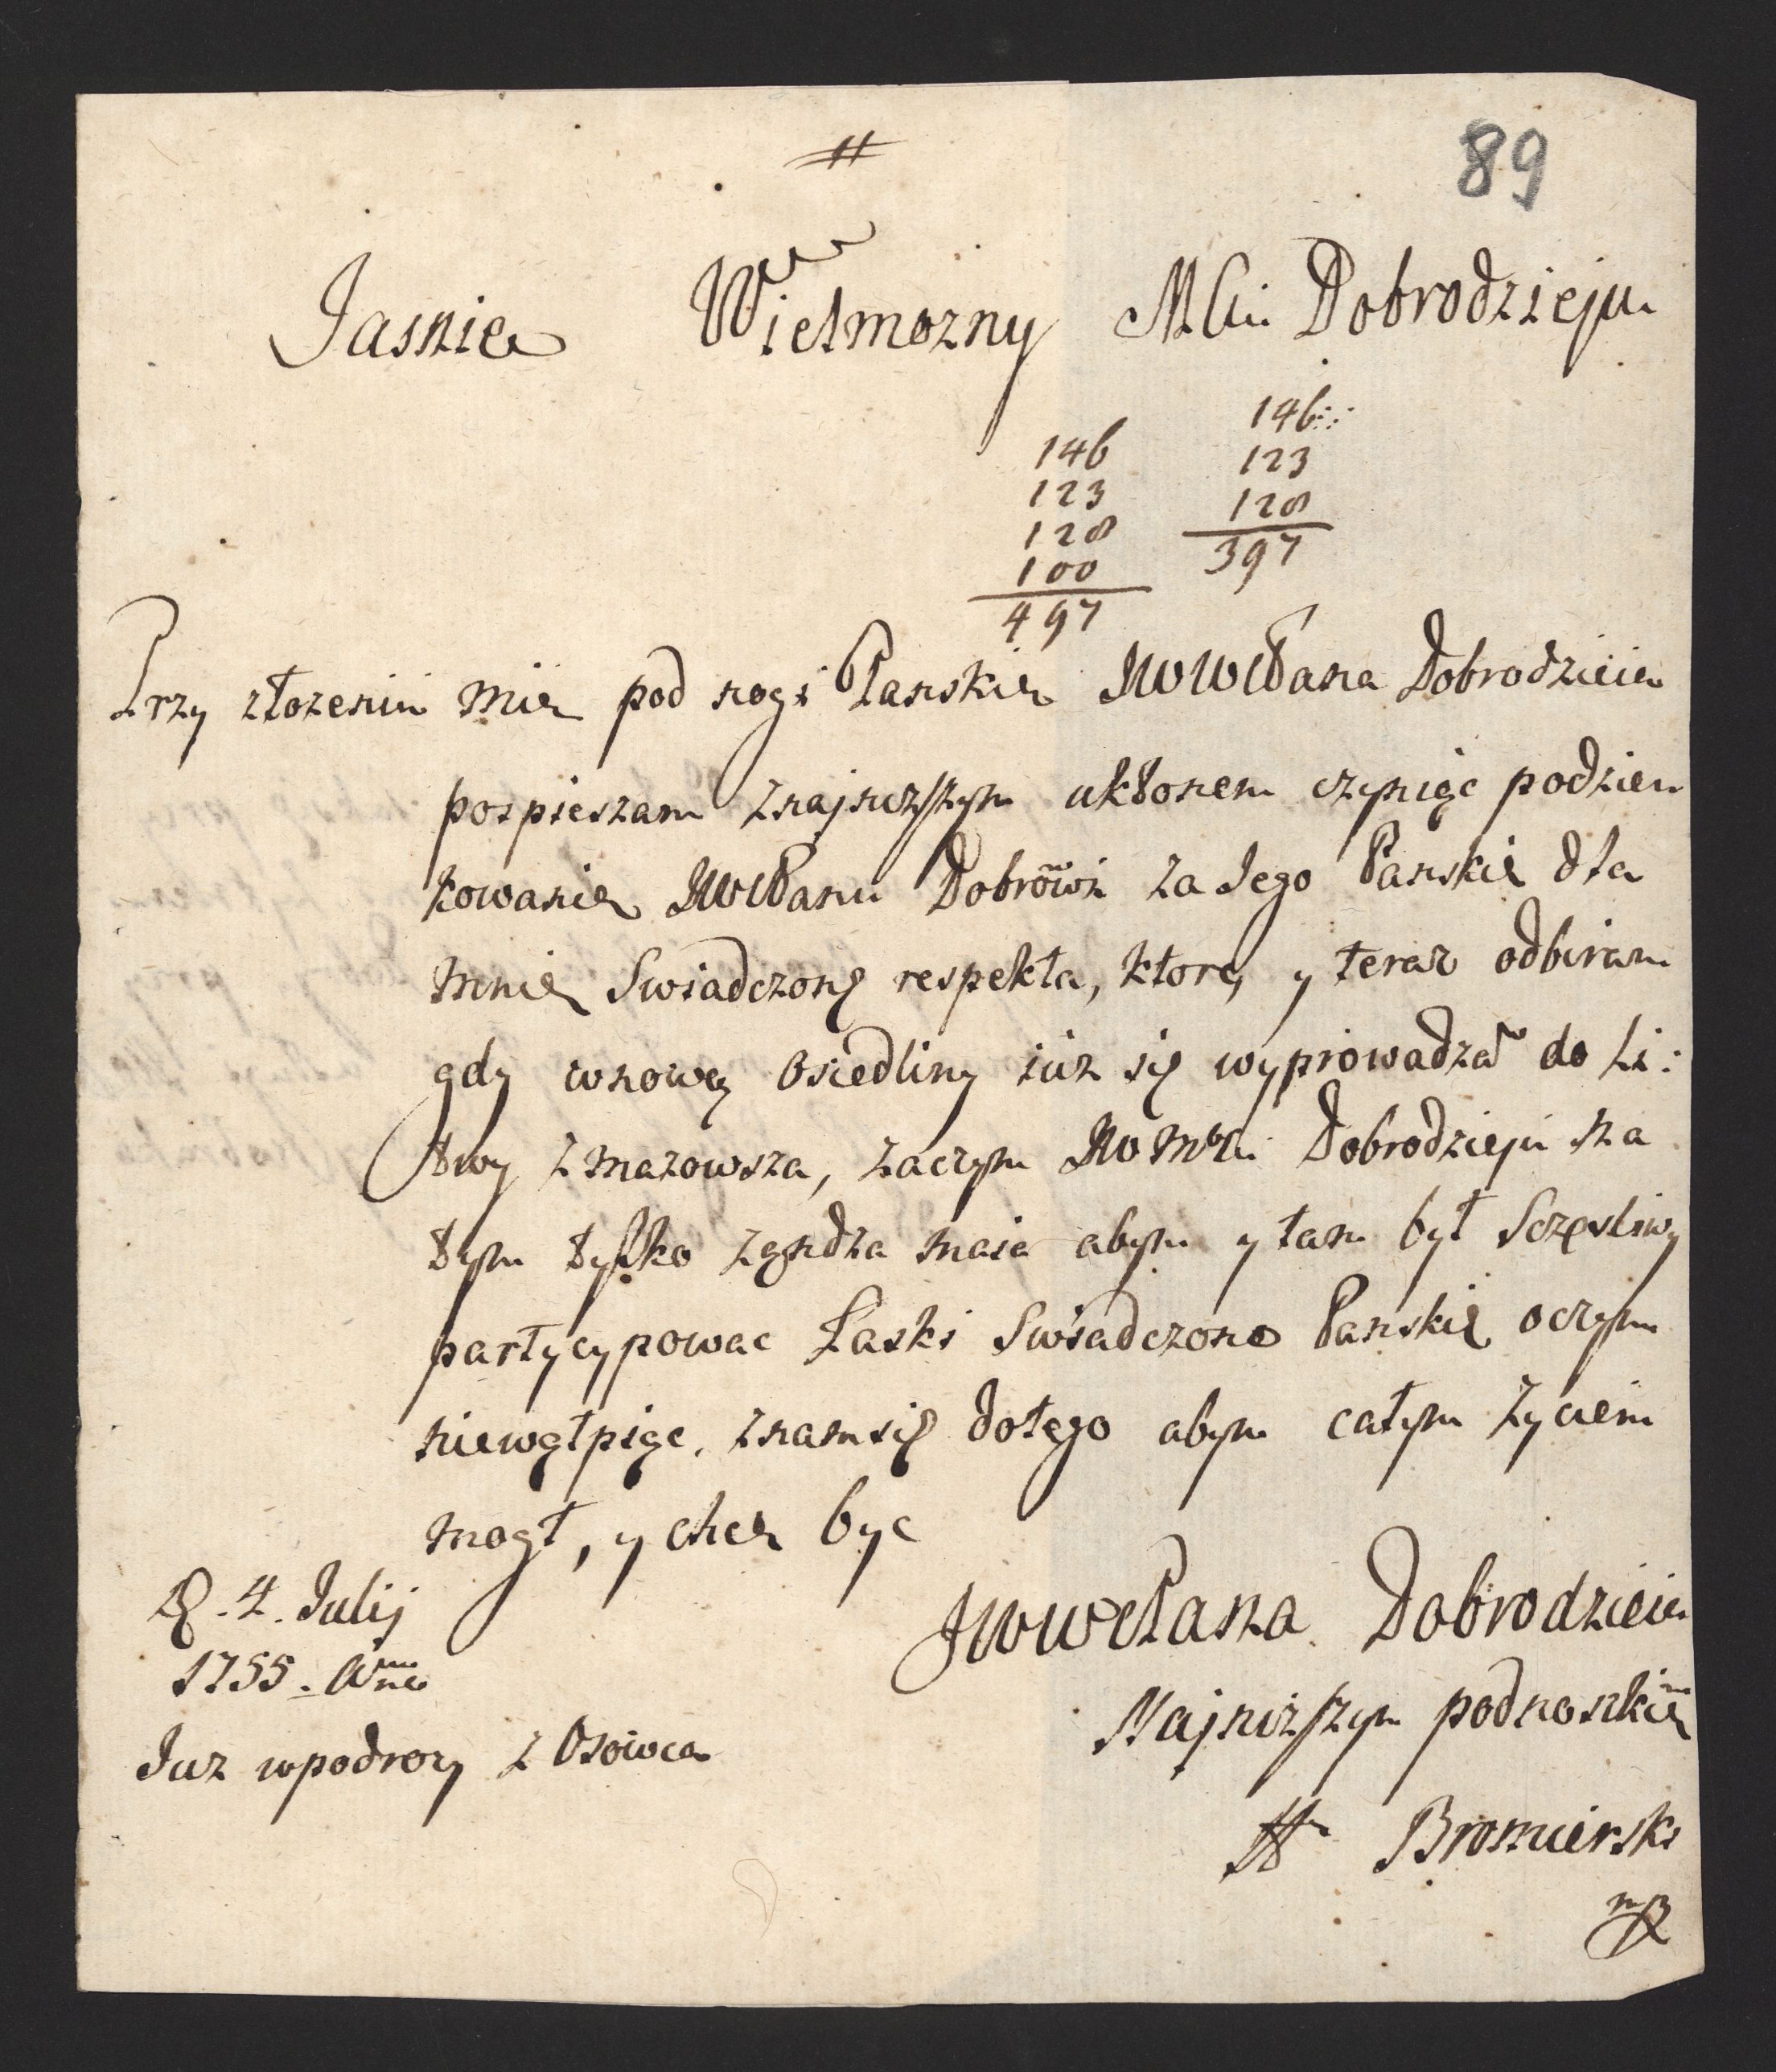 89
Jasnie Wielmozny MCi Dobrodzieju
146 146
123 123
128 128
100 397
497
Przy złozeniu mie pod nogi Panskie JWWCPana Dobrodzieia
pospieszam znajnizszym ukłonem czyniąc podzien
kowanie JWWCPanu Dobrowi za Jego Panskie dla
mnie Swiadczonę respekta, ktorę y teraz odbiram
gdy wnowę Osiedliny iuz się wyprowadzał do Li:
twy z mazowsza, zaczym Dobrodzieju na
tym tylko maia abym y tam był Sczęsliwy
partycypowac Łaski Swiadczone Panskie oczym
niewątpiąc, znam się dotego abym całym życiem
mogł, y chce byc
D. 4. Julij
1755. Anno
Juz wpodrozy z Osowca
JWWCPana Dobrodzieia
Najnizszym podnoskie
Bromierski
mp